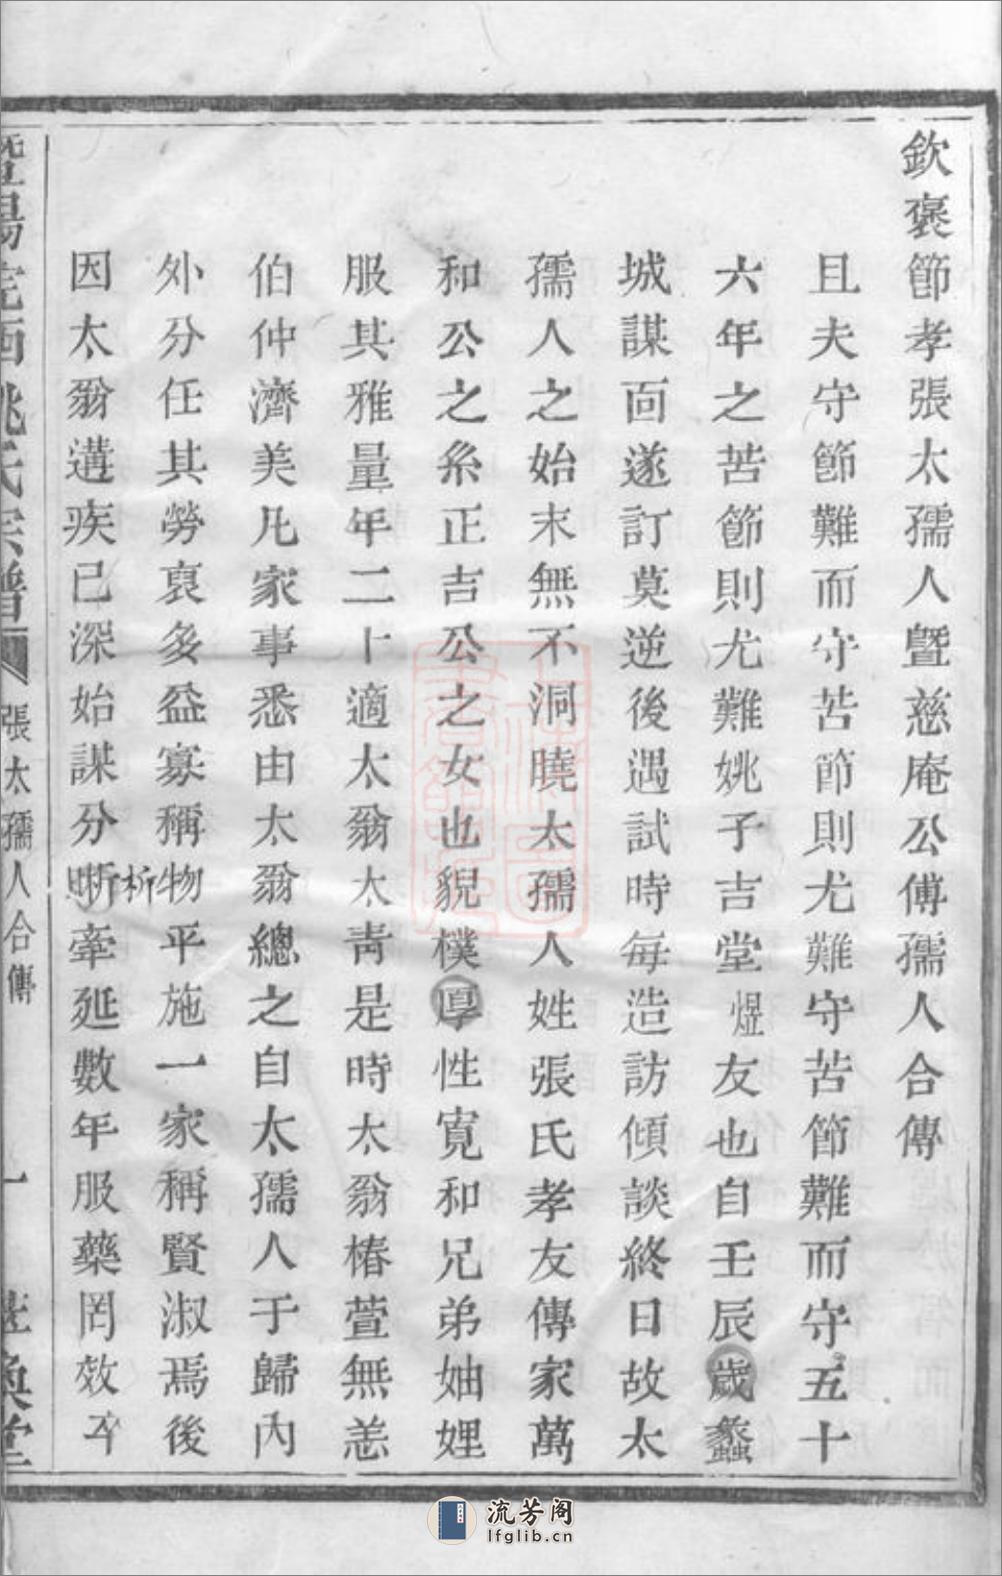 欽褒節孝張太孺人曁慈庵公傅孺人合傳
且夫守節難而守苦節則尤難守苦節難而守五十
六年之苦節則尤難姚子吉堂煜友也自壬辰歲蠡
城謀面遂訂莫逆後遇試時每造訪傾談終日故太
孺人之始末無不洞曉太孺人姓張氏孝友傳家萬
和公之系正吉公之女也貌樸厚性寬和兄弟妯娌
服其雅量年二十適太翁太靑是時太翁椿萱無恙
伯仲濟美凡家事悉由太翁總之自太孺人于歸內
外分任其勞裒多益寡稱物平施一家稱賢淑焉後
因太翁遘疾已深始謀分析牽延數年服藥罔效卒
析
暨陽 西姚氏宗譜
張太孺人合傳
一
堂
流芳阁
lfglib.cn